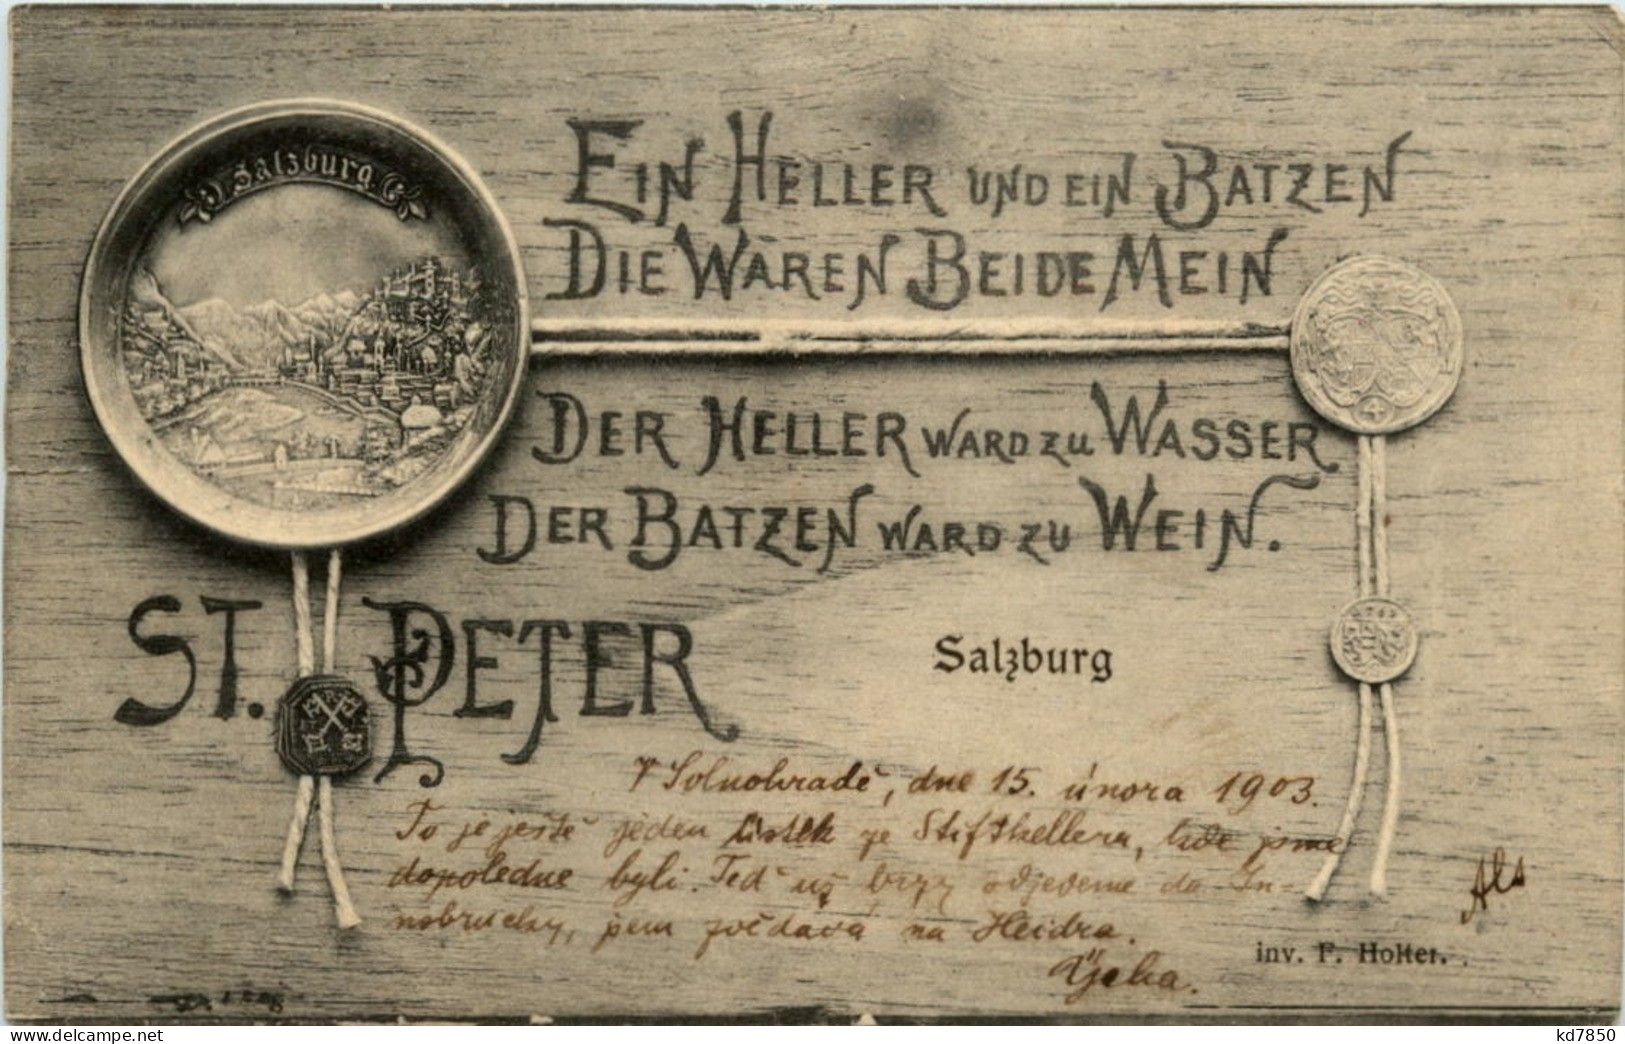 Salzburg
EIN HELLER UND EIN BATZEN
DIE WAREN BEIDE MEIN
DER HELLER WARD ZU WASSER
DER BATZEN WARD ZU WEIN.
ST. PETER
Salzburg
V Solnohradě, dne 15. února 1903.
To je ještě jeden lístek ze Stiftkelleru, kde jsme
dopoledne byli. Teď už brzy odjedeme do In-
nsbrucku, jsem zvědavá na
Als
inv. F. Holter.
kd7850